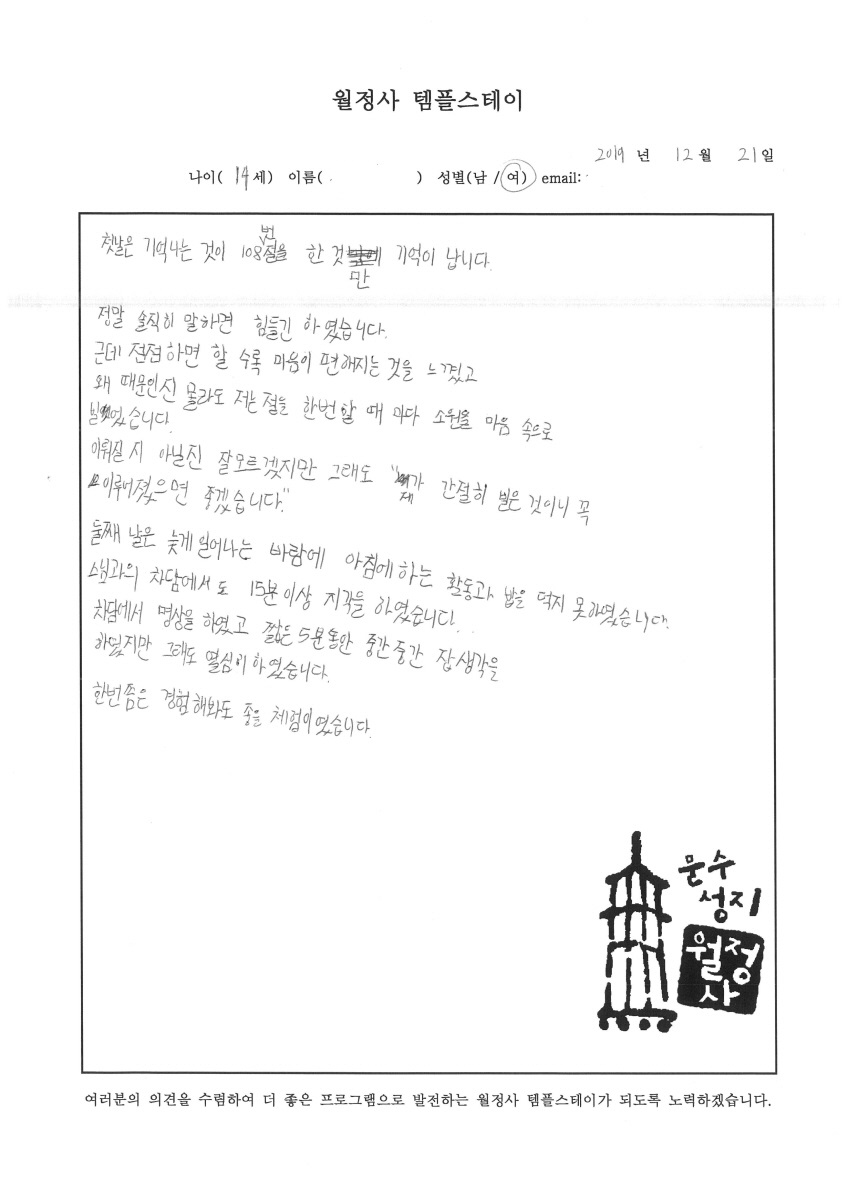 월정사 템플스테이
2019 년 12 월 21 일
나이( 14 세) 이름( ) 성별(남 / 여) email:
첫날은 기억나는 것이 108번 절을 한 것만 기억이 납니다.
정말 솔직히 말하면 힘들긴 하였습니다.
근데 점점하면 할 수록 마음이 편해지는 것을 느꼈고
왜 때문인진 몰라도 저는 절을 한번할 때 마다 소원을 마음 속으로
빌었습니다.
이뤄질 지 아닐진 잘모르겠지만 그래도 "제가 간절히 빌은 것이니 꼭
이루어졌으면 좋겠습니다."
둘째 날은 늦게 일어나는 바람에 아침에 하는 활동과 밥을 먹지 못하였습니다.
스님과의 차담에서도 15분이상 지각을 하였습니다.
차담에서 명상을 하였고 짧은 5분동안 중간중간 잡생각을
하였지만 그래도 열심히 하였습니다.
한번쯤은 경험해봐도 좋을 체험이였습니다.
문수
성지
월정
사
여러분의 의견을 수렴하여 더 좋은 프로그램으로 발전하는 월정사 템플스테이가 되도록 노력하겠습니다.